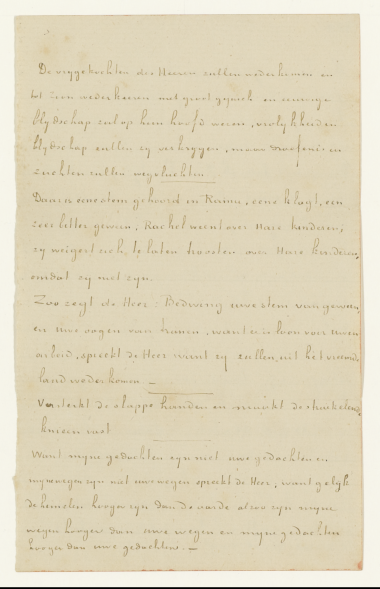 De vrygekochten des Heeren zullen wederkomen en
tot Zion wederkeeren met groot gejuich en eeuwige
blydschap zal op hun hoofd wezen, vrolykheid en
blydschap zullen zy verkrygen, maar droefenis en
zuchten zullen wegvluchten.
Daar is eene stem gehoord in Rama, eene klagt, een
zeer bitter geween, Rachel weent over Hare kinderen,
zy weigert zich te laten troosten over Hare kinderen,
omdat zy niet zyn.
Zoo zegt de Heer: Bedwing uwe stem van geween,
en uwe oogen van tranen, want er is loon voor uwen
arbeid, spreekt de Heer want zy zullen uit het vyands
land wederkomen. —
Versterkt de slappe handen en maakt de struikelende
knieen vast
Want myne gedachten zyn niet uwe gedachten en
myne wegen zyn niet uwe wegen spreekt de Heer, want gelyk
de hemelen hooger zyn dan de aarde alzoo zyn myne
wegen hooger dan uwe wegen en myne gedachten
hooger dan uwe gedachten. —